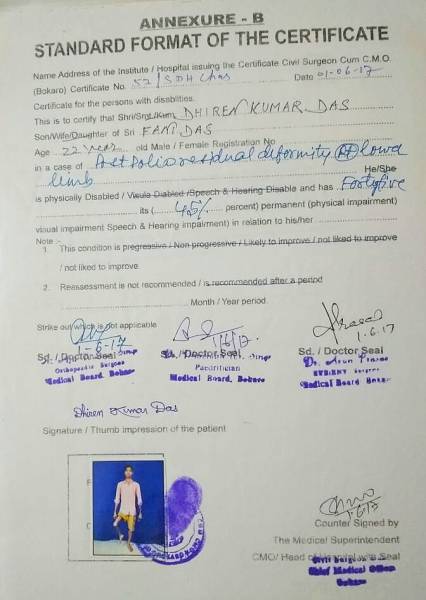 ANNEXURE - B
STANDARD FORMAT OF THE CERTIFICATE
Name Address of the Institute / Hospital issuing the Certificate Civil Surgeon Cum C.M.O.
(Bokaro) Certificate No. 52/SDH Chas Date 01-06-17
Certificate for the persons with disabilities.
This is to certify that Shri/Smt/Kum DHIREN KUMAR DAS
Son/Wife/Daughter of Sri FANI DAS
Age 22 years old Male / Female Registration No
in a case of Post Polio residual deformity lower
limb He/She
is physically Disabled / Visula Diabled /Speech & Hearing Disable and has Fortyfive
its ( 45% percent) permanent (physical impairment)
visual impairment Speech & Hearing impairment) in relation to his/her
Note :-
1. This condition is pregressive / Non progressive / Likely to improve / not liked to improve
/ not liked to improve
2. Reassessment is not recommended / is recommended after a period
Month / Year period.
Strike out which is not applicable
1-6-17
1/6/17
1.6.17
Sd. / Doctor Seal
Sd. / Doctor Seal
Sd. / Doctor Seal
Orthopaedic Surgeon
Medical Board, Bokaro
Medical Board, Bokaro
Medical Board Bokaro
Dhiren Kumar Das
Signature / Thumb impression of the patient
1.6.17
Counter Signed by
The Medical Superintendent
CMO/ Head of Hospital with Seal
Civil Surgeon
Chief Medical Officer
Bokaro